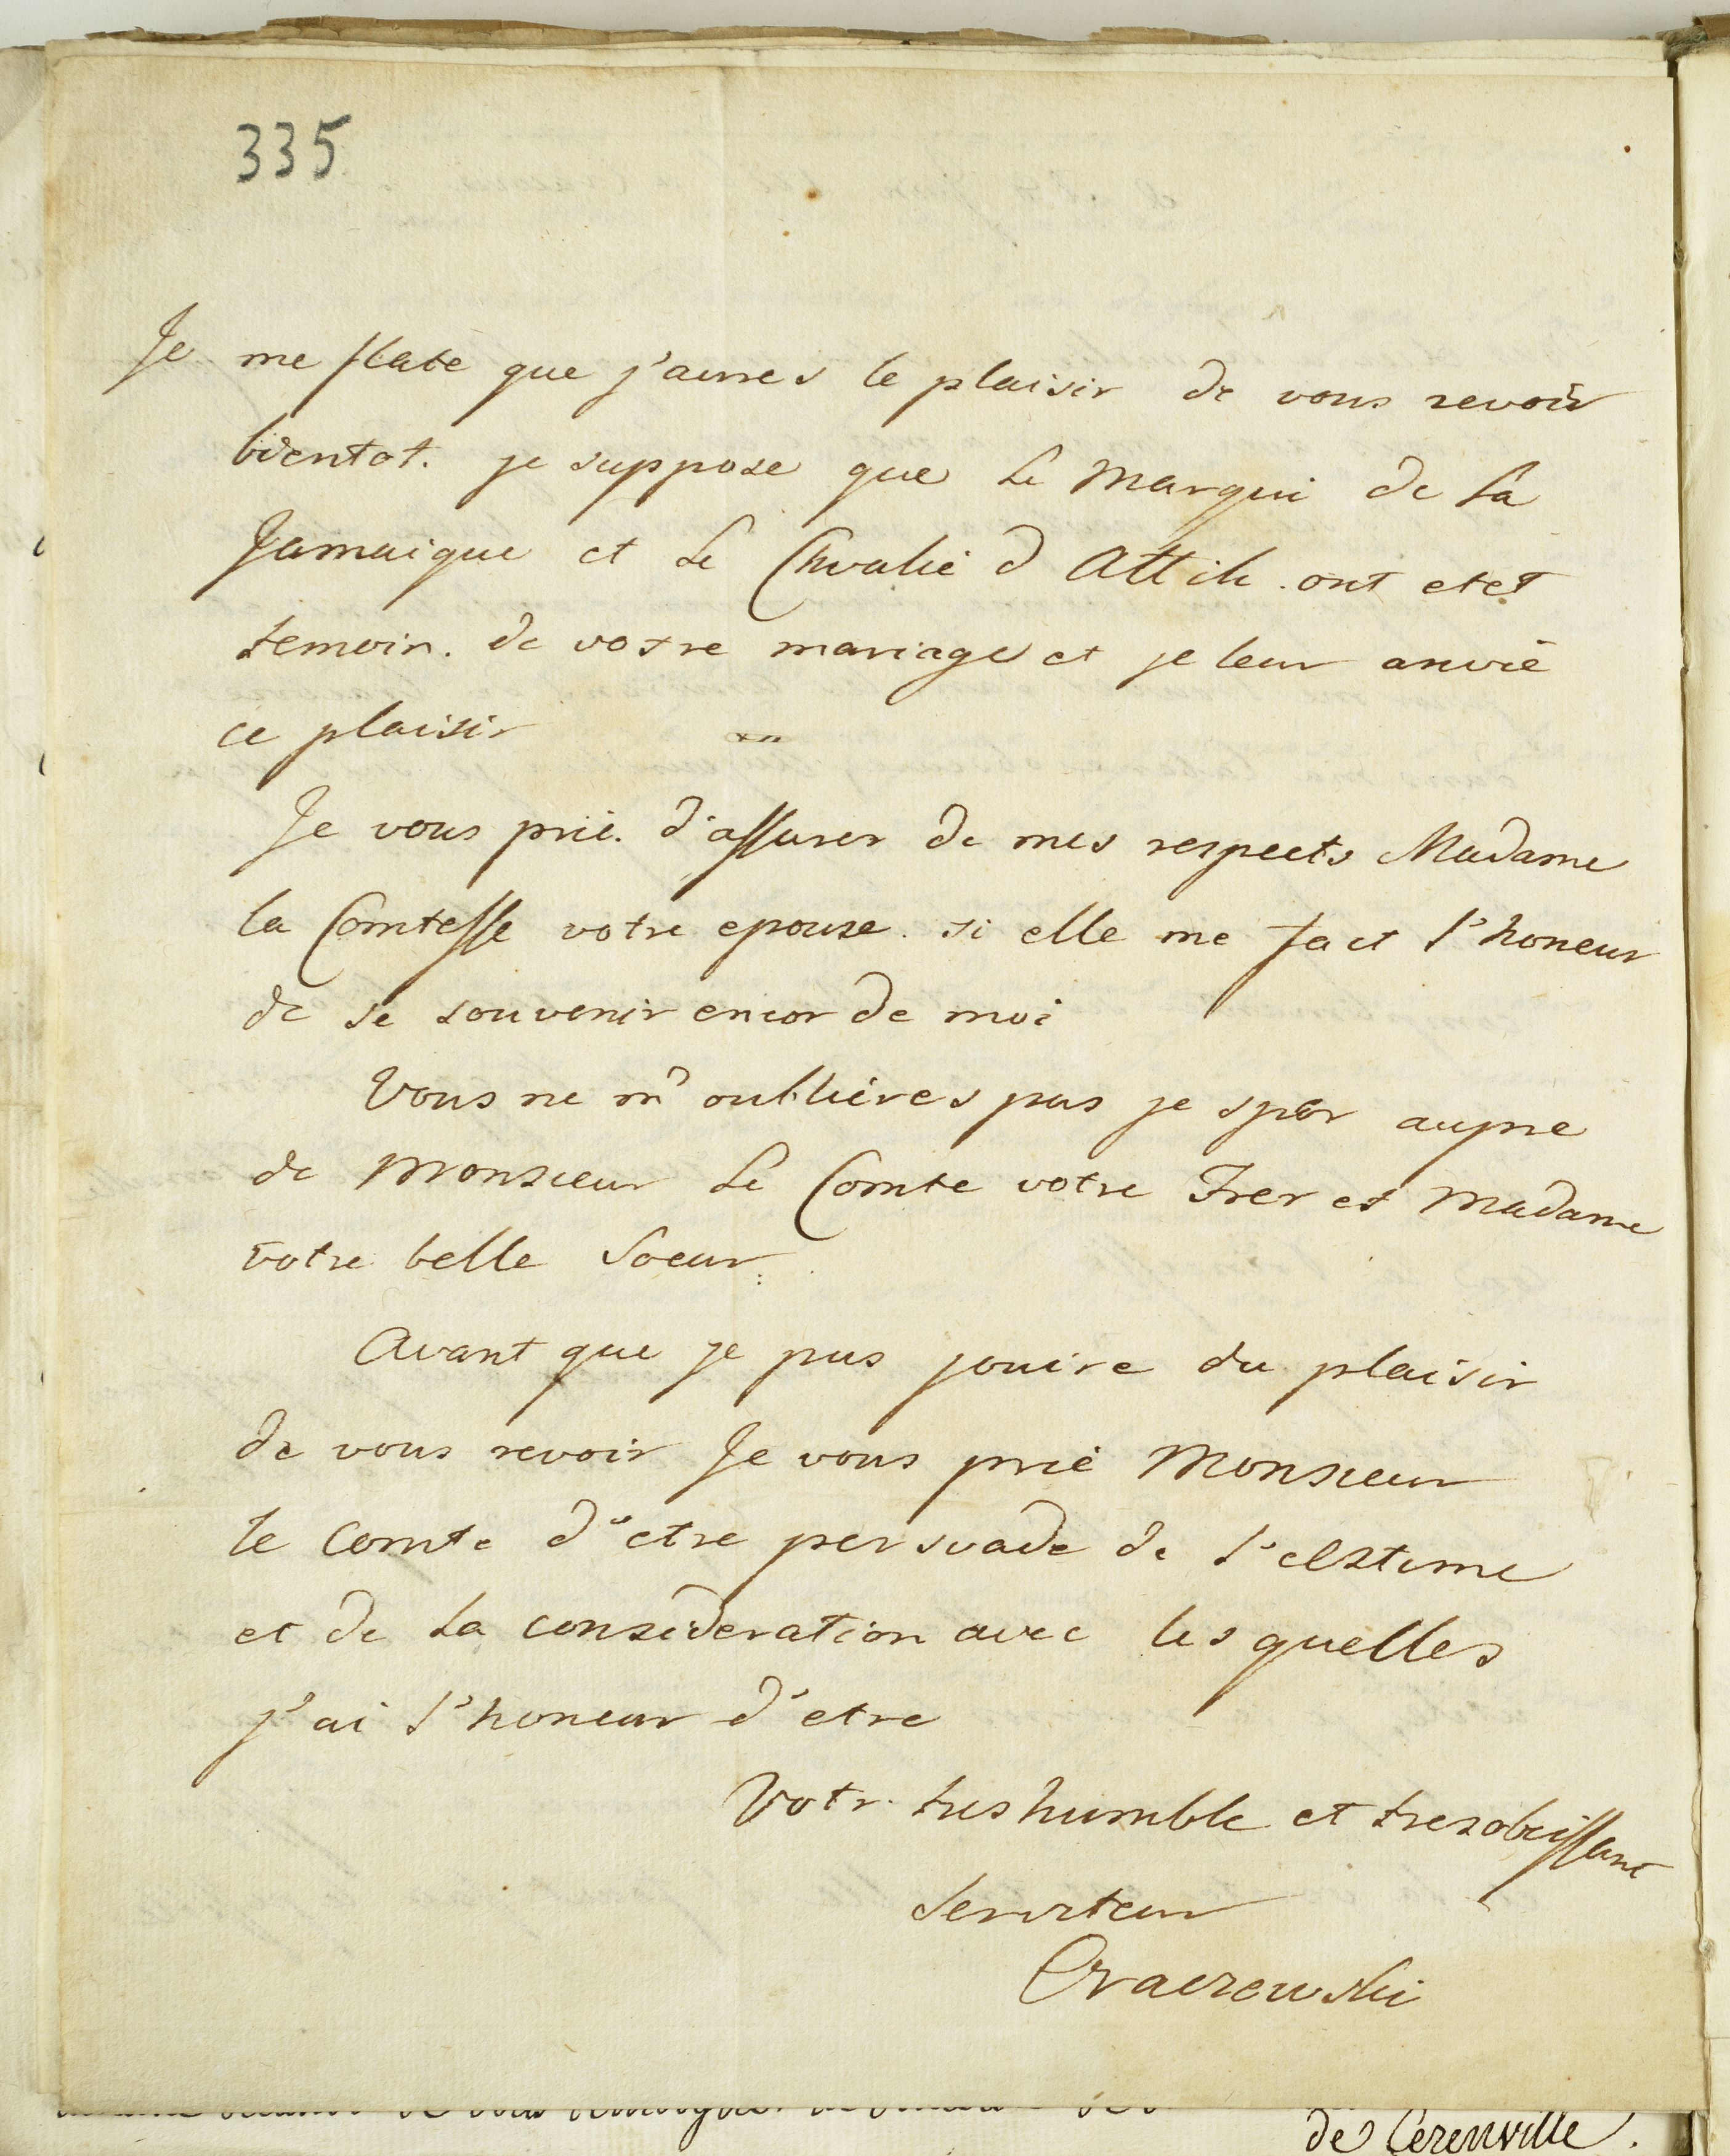 335
Je me flate que j'aures le plaisir de vous revoir
bientot. je suppose que le Marqui de la
Jamaique et le Chvalié d Attili ont etet
temoin. de votre mariage et je leur anvié
ce plaisir
Je vous prié. d'assurer de mes respects Madame
la Comtesse votre epouse. si elle me fait l'honeur
de se souvenir encor de moi
Vous ne m'oublieres pas je sper aupre
de Monsieur le Comte votre Frer et Madame
votre belle Soeur:
Avant que je pus jouire du plaisir
de vous revoir Je vous prié Monsieur
le Comte d'etre persuade de l'estime
et de la consideration avec lesquelles
j'ai l'honeur d'etre
Votr. tres humble et tres obeissant
Serviteur
Oraczewski
de Cerenville.